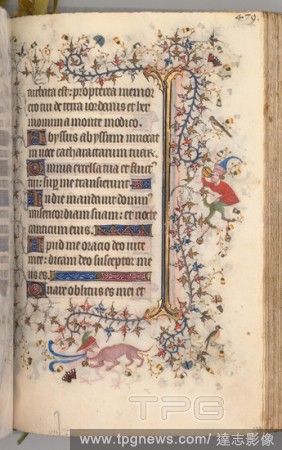 479
turbata est: propterea memor
ero tui de terra iordanis et her
monium a monte modico.
Abyssus abyssum invocat
in voce catharactarum tuarum.
Omnia excelsa tua et fluct
tui: sup me transierunt.
In die mandavit domin
misericordiam suam: et nocte
canticum eius.
Apud me oracio deo vite
mee: dicam deo susceptor me
us es.
Quare oblitus es mei et
TPG
www.tpgnews.com/達志影像